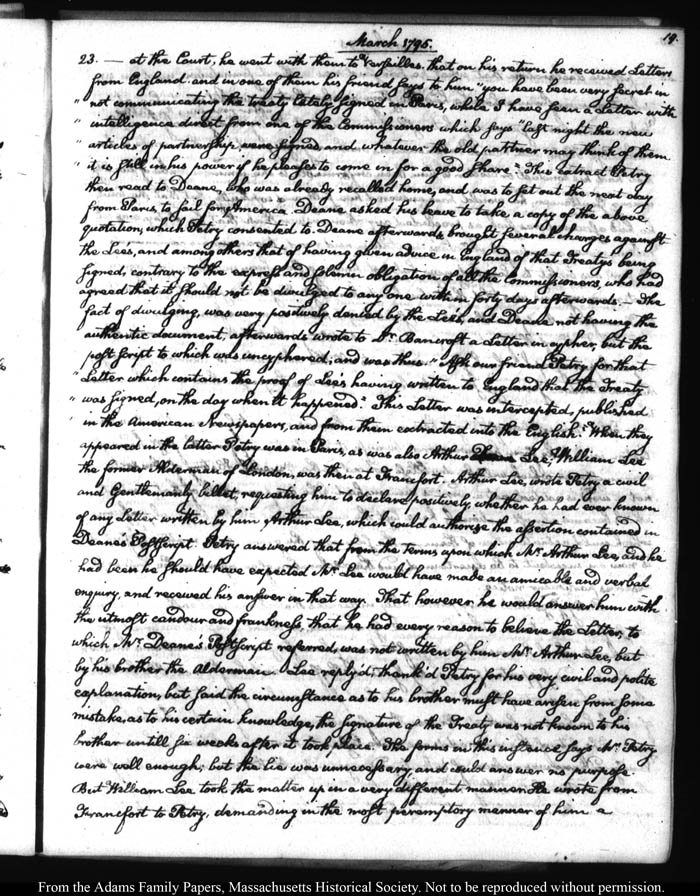 19.
March 1795.
23. — at the Court, he went with them to Versailles, that on his return he received Letters
from England and in one of them his friend says to him "you have been very secret in
" not communicating the treaty lately signed in Paris, while I have seen a letter with
" intelligence direct from one of the Commissioners which says "last night the new
" articles of partnership were signed and whatever the old partner may think of them
" it is still in his power if he pleases to come in for a good share." This extract Petry
then read to Deane, who was already recalled home, and was to set out the next day
from Paris, to sail for America. Deane asked his leave to take a copy of the above
quotation, which Petry consented to. Deane afterwards brought several charges against
the Lees, and among others that of having given advice in England of that Treaty's being
signed, contrary to the express and solemn obligation of all the Commissioners, who had
agreed that it should not be divulged to any one within forty days afterwards. — The
fact of divulging, was very positively denied by the Lees, and Deane not having the
authentic document, afterwards wrote to Dr. Bancroft a Letter in cypher, but the
post script to which was uncyphered, and was thus. "Ask our friend Petry for that
" Letter which contains the proof of Lee's having written to England that the Treaty
" was signed, on the day when it happened." This Letter was intercepted, published
in the American Newspapers, and from them extracted into the English. When they
appeared in the latter Petry was in Paris, as was also Arthur Lee, William Lee
the former Alderman of London, was then at Francfort. Arthur Lee, wrote Petry a civil
and Gentlemanly billet, requesting him to declare positively, whether he had ever known
of any Letter written by him, Arthur Lee, which could authorise the assertion contained in
Deane's Postscript. Petry answered that from the terms upon which Mr. Arthur Lee, and he
had been he should have expected Mr. Lee would have made an amicable and verbal
enquiry, and received his answer in that way. That however he would answer him with
the utmost candour and frankness that he had every reason to believe the Letter, to
which Mr. Deane's Postscript referred, was not written by him Mr. Arthur Lee, but
by his brother the Alderman. Lee reply'd, thank'd Petry for his very civil and polite
explanation, but said the circumstance as to his brother must have arisen from some
mistake, as to his certain knowledge, the signature of the Treaty was not known to his
brother untill six weeks after it took place. The forms in this instence says Mr. Petry
were well enough; but the lie was unnecessary, and could answer no purpose.
But William Lee took the matter up in a very different manner. He wrote from
Francfort to Petry, demanding in the most peremptory manner of him a
From the Adams Family Papers, Massachusetts Historical Society. Not to be reproduced without permission.